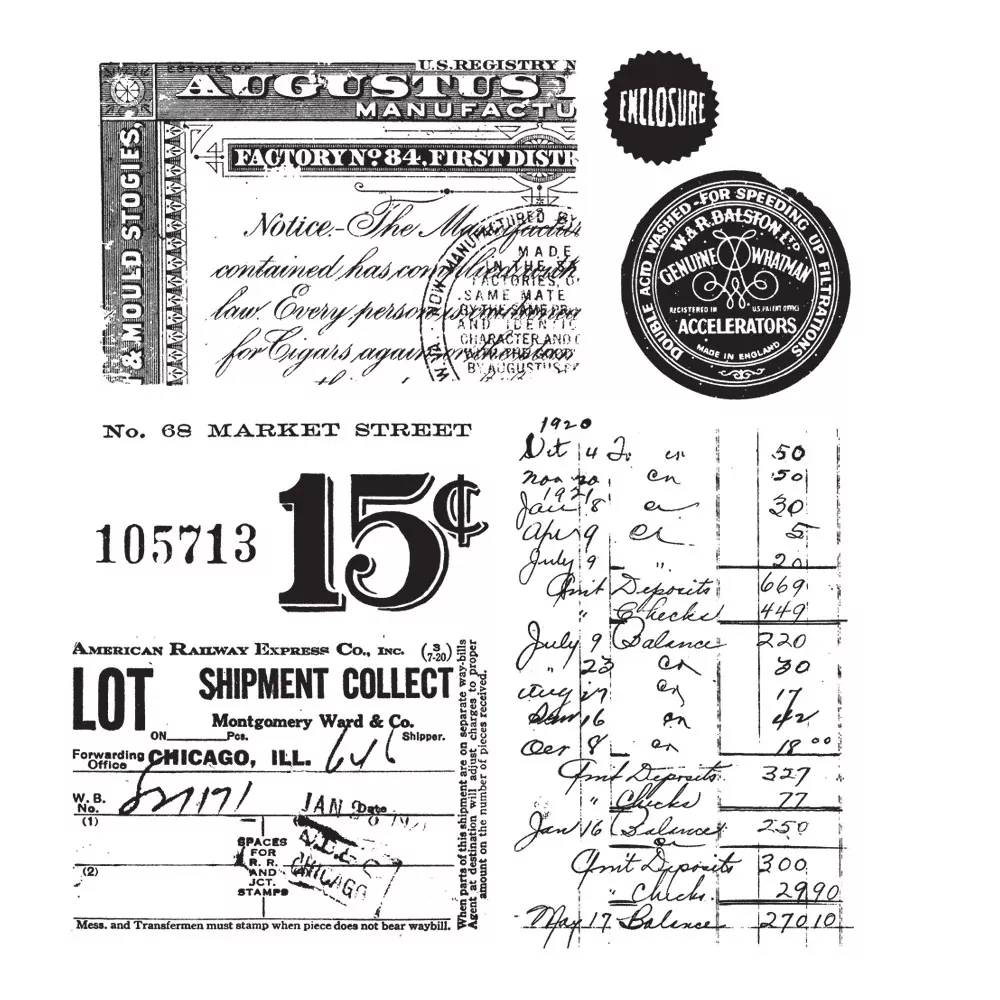 U.S. REGISTRY N
ESTATE OF
AUGUSTUS
MANUFACTU
& MOULD STOGIES,
FACTORY Nº 84, FIRST DISTR
Notice.-The Manufactur
contained has complied with
law. Every person is
for Cigars again
MANUFACTURED BY
MADE
IN THE SA
FACTORIES, O
SAME MATE
BY THE SAME PR
AND IDENTIC
CHARACTER AND
WITH THE GOOD
BY AUGUSTUS
ENCLOSURE
DOUBLE ACID WASHED-FOR SPEEDING UP FILTRATIONS
W. & R. BALSTON LTD
GENUINE WHATMAN
REGISTERED IN U.S. PATENT OFFICE
ACCELERATORS
MADE IN ENGLAND
No. 68 MARKET STREET
15¢
105713
AMERICAN RAILWAY EXPRESS CO., INC. (3 7-20)
LOT SHIPMENT COLLECT
Montgomery Ward & Co.
ON Pcs. Shipper.
Forwarding Office CHICAGO, ILL.
W. B. No.
JAN Date
(1)
SPACES
FOR
R. R.
AND
JCT.
STAMPS
CHICAGO
(2)
Mess. and Transfermen must stamp when piece does not bear waybill.
When parts of this shipment are on separate way-bills
Agent at destination will adjust charges to proper
amount on the number of pieces received.
1920
Oct 4 50
50
1921
Jan 8 30
Apr 9 5
July 9 " 20
Amt Deposits 669
" Checks 449
July 9 Balance 220
" 23 30
Aug 17
16 42
Oct 8 18 00
Amt Deposits 327
" Checks 77
Jan 16 Balance 250
Amt Deposits 300
" Checks. 29.90
May 17 Balance 270 10